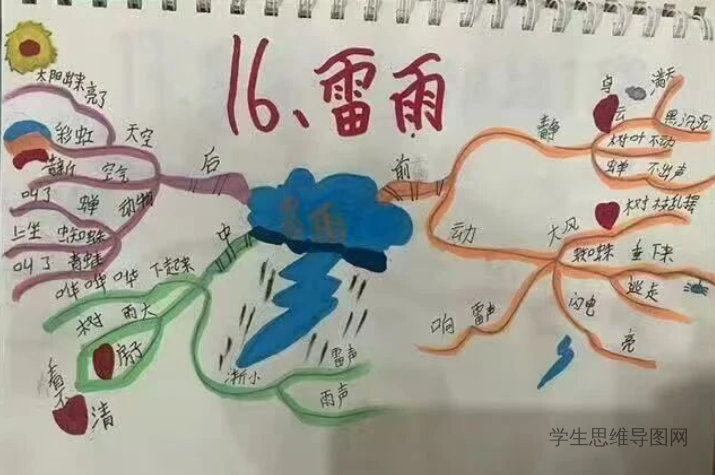 16、雷雨
雷雨
前
静
乌云
满天
黑沉沉
树叶 不动
蝉 不出声
动
大风
树枝乱摆
蜘蛛 垂下来
逃走
闪电
亮
雷声
响
中
下起来
哗 哗 哗
雨大
树
房子
看不清
渐小
雷声
雨声
后
天空
太阳出来
亮了
彩虹
空气
清新
动物
蝉
叫了
蜘蛛
上坐
青蛙
叫了
学生思维导图网